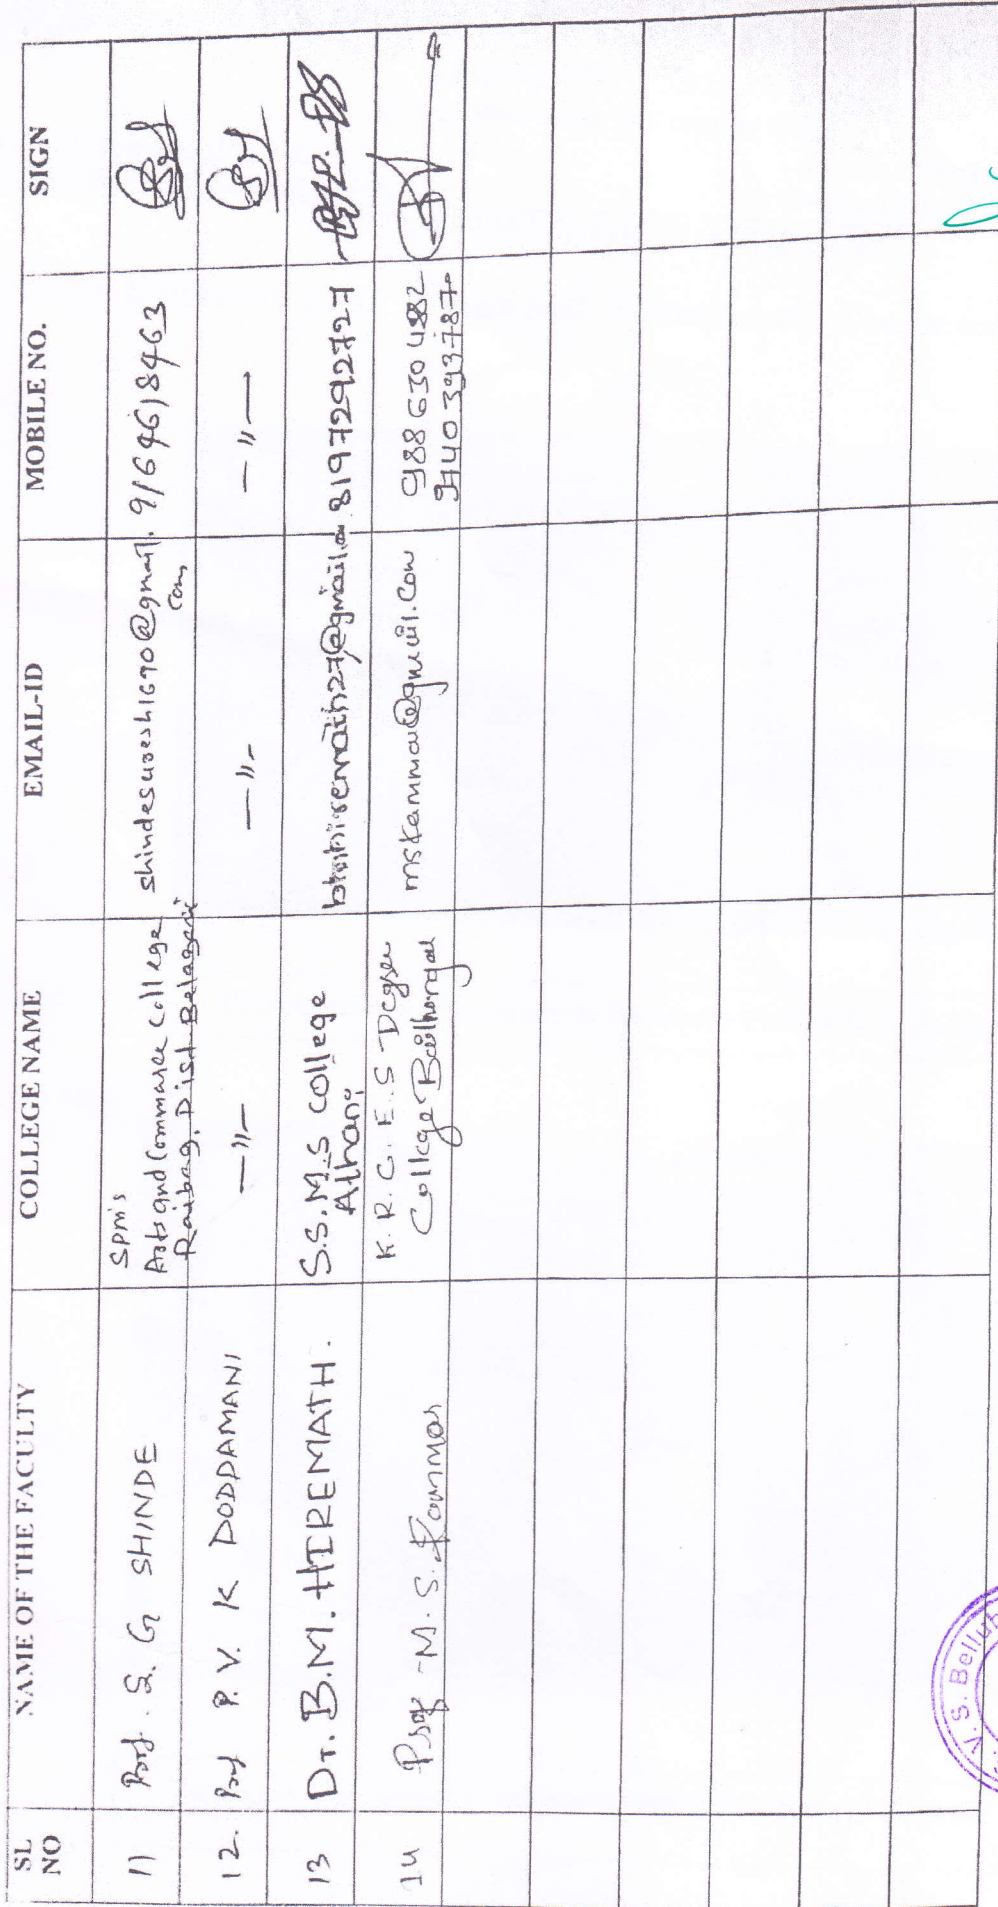 SL NO NAME OF THE FACULTY COLLEGE NAME EMAIL-ID MOBILE NO. SIGN
11 Prof. S. G SHINDE SPM's Arts and Commerce College Raibag, Dist. Belagavi shindesuresh1670@gmail.com 9164618463
12. Prof P. V. K DODDAMANI —〃— —〃— —〃—
13 Dr. B.M. HIREMATH. S.S.M.S college Athani bmhiremath27@gmail.com 8197292727
14 Prof - M. S. Kammar K. R. C. E. S Degree College Bailhongal mskammar@gmail.com 9740393787
V. S. Bellub